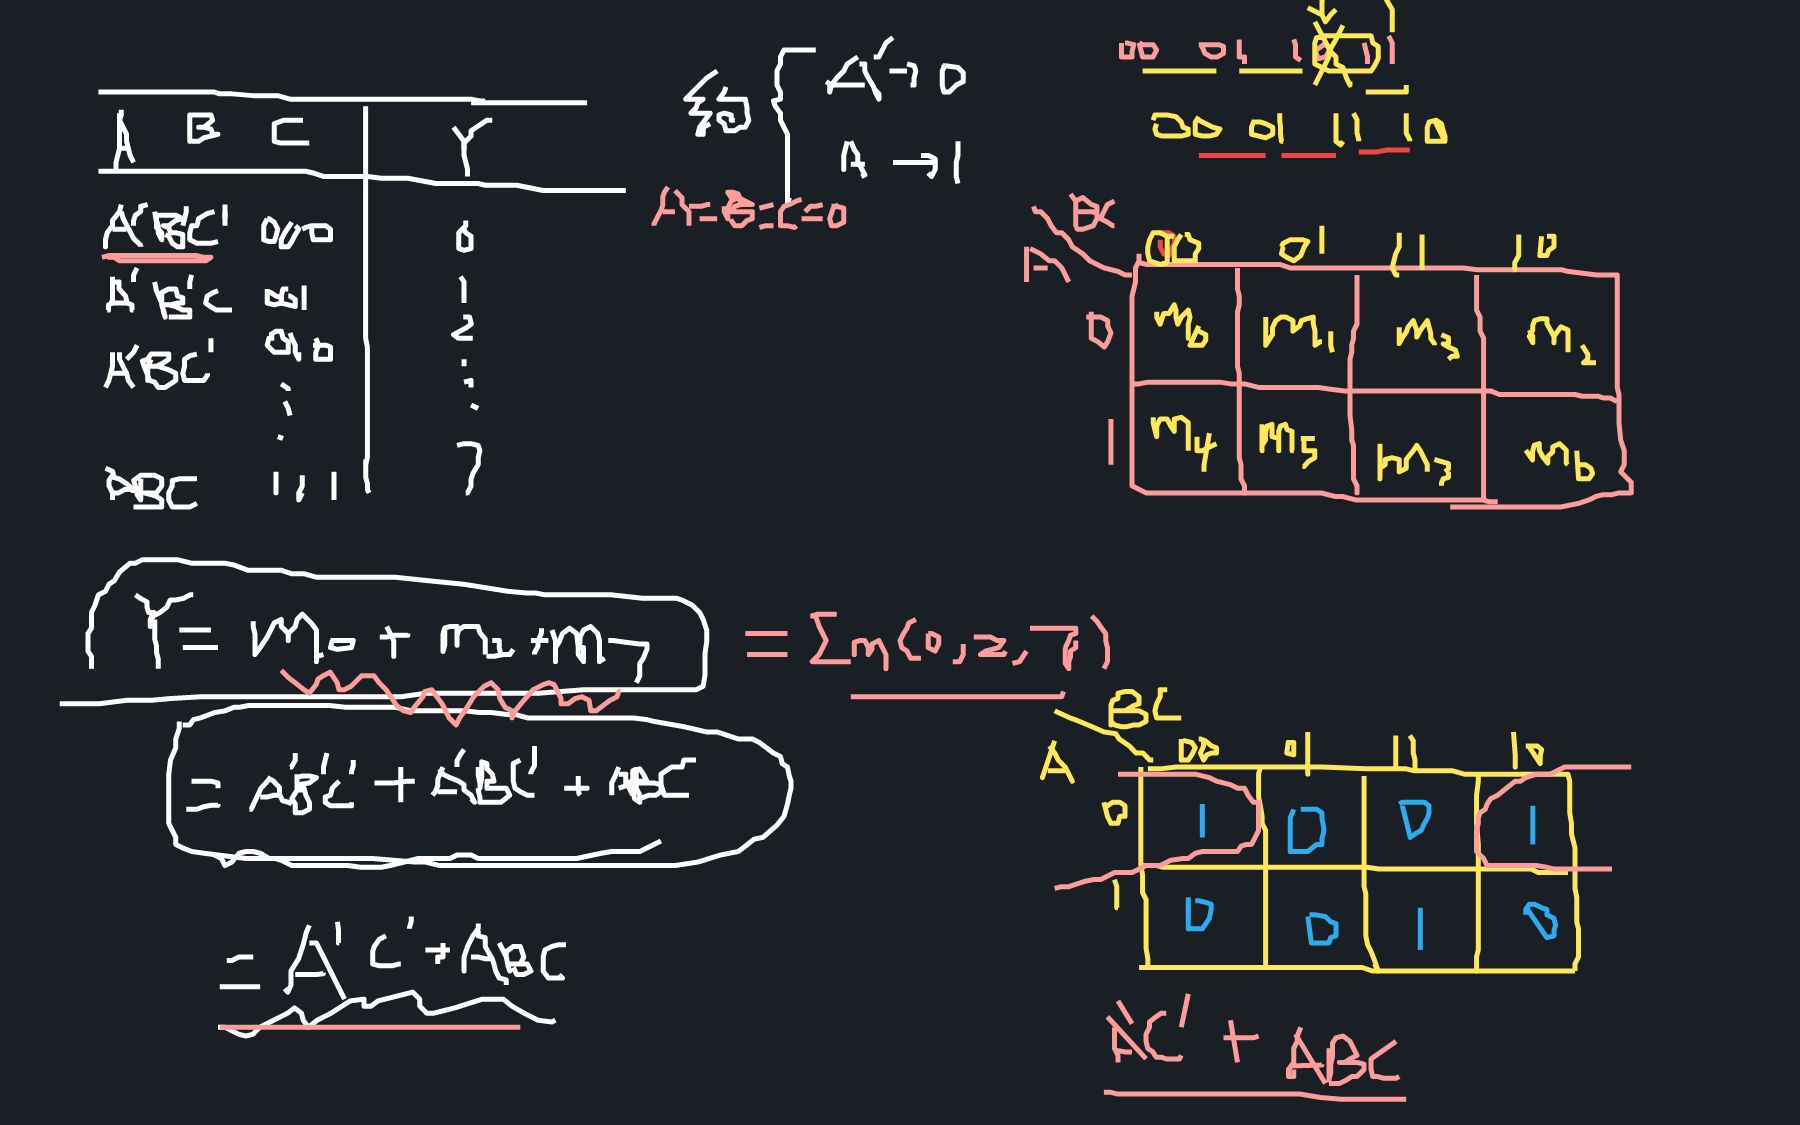 A B C Y
A'B'C' 000 0
A'B'C 001 1
A'BC' 010 2
ABC 111 7
A' → 0
A → 1
A=B=C=0
00 01 10 11
00 01 11 10
A BC
00 01 11 10
0 m0 m1 m3 m2
1 m4 m5 m7 m6
Y = m0 + m2 + m7 = Σm(0,2,7)
= A'B'C' + A'BC' + ABC
= A'C' + ABC
A BC
00 01 11 10
0 1 0 0 1
1 0 0 1 0
A'C' + ABC